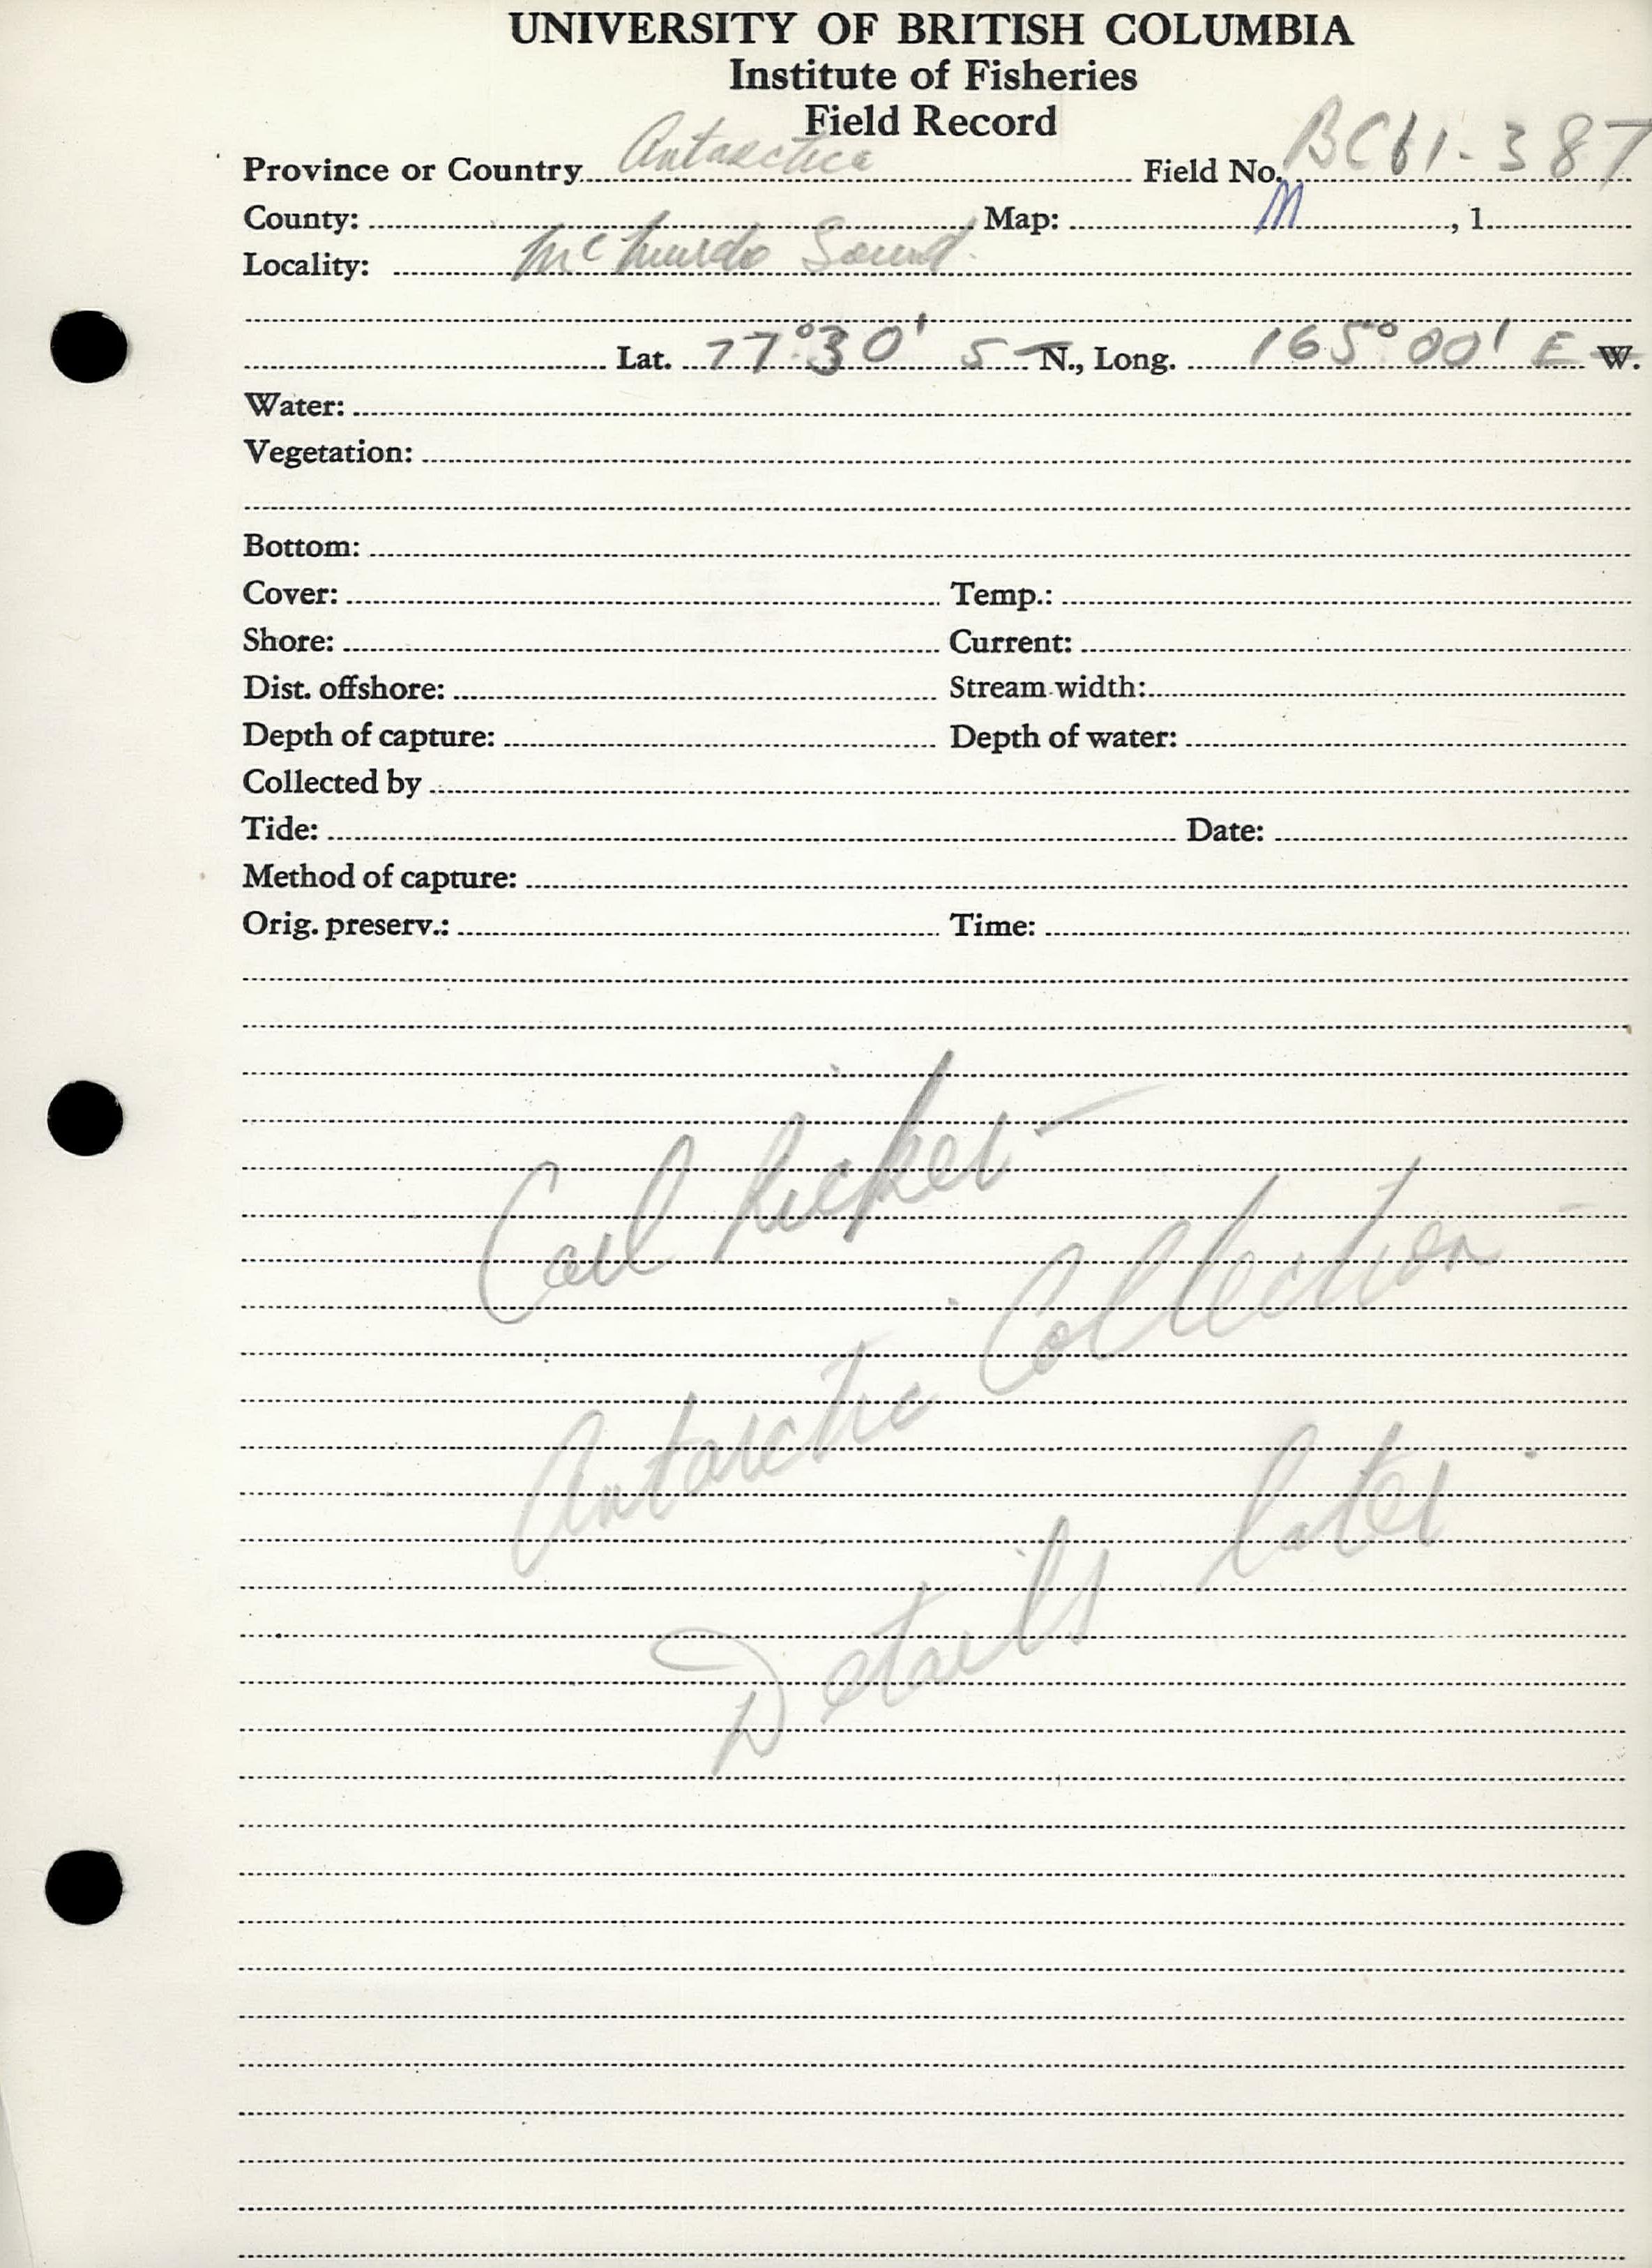 UNIVERSITY OF BRITISH COLUMBIA
Institute of Fisheries
Field Record
Province or Country Antarctica Field No. BC61-387
County: Map: M , 1
Locality: McMurdo Sound.
Lat. 77°30' S N., Long. 165°00' E W.
Water:
Vegetation:
Bottom:
Cover: Temp.:
Shore: Current:
Dist. offshore: Stream width:
Depth of capture: Depth of water:
Collected by
Tide: Date:
Method of capture:
Orig. preserv.: Time:
Carl Ricker
Antarctic Collection
Details later